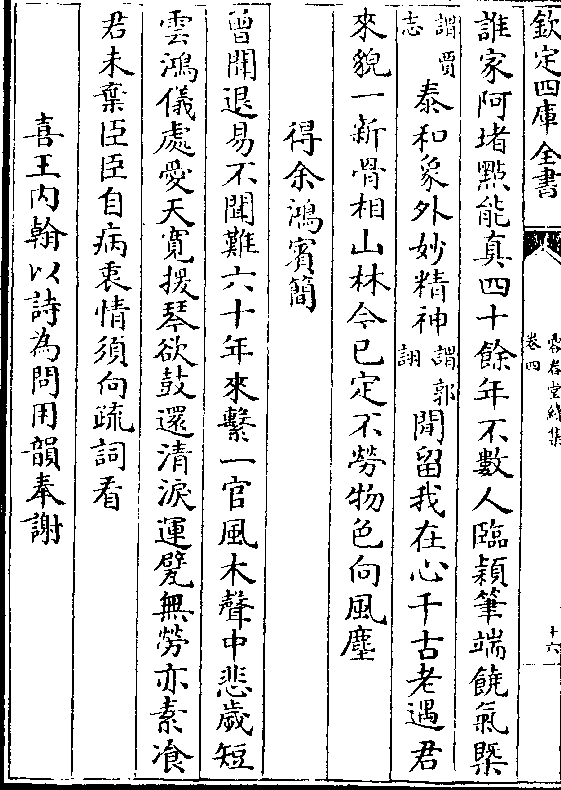 欽定四庫全書
容春堂續集
卷四
十六
誰家阿堵㸃能真四十餘年不數人臨頴筆端饒氣槩
謂賈志泰和象外妙精神謂郭詡閒留我在心千古老遇君
來貌一新骨相山林今已定不勞物色向風塵
得余鴻賓簡
曾聞退易不聞難六十年來繫一官風木聲中悲歲短
雲鴻儀處愛天寛援琴欲鼓還清淚運甓無勞亦素飡
君未棄臣臣自病衷情須向疏詞看
喜王内翰以詩為問用韻奉謝